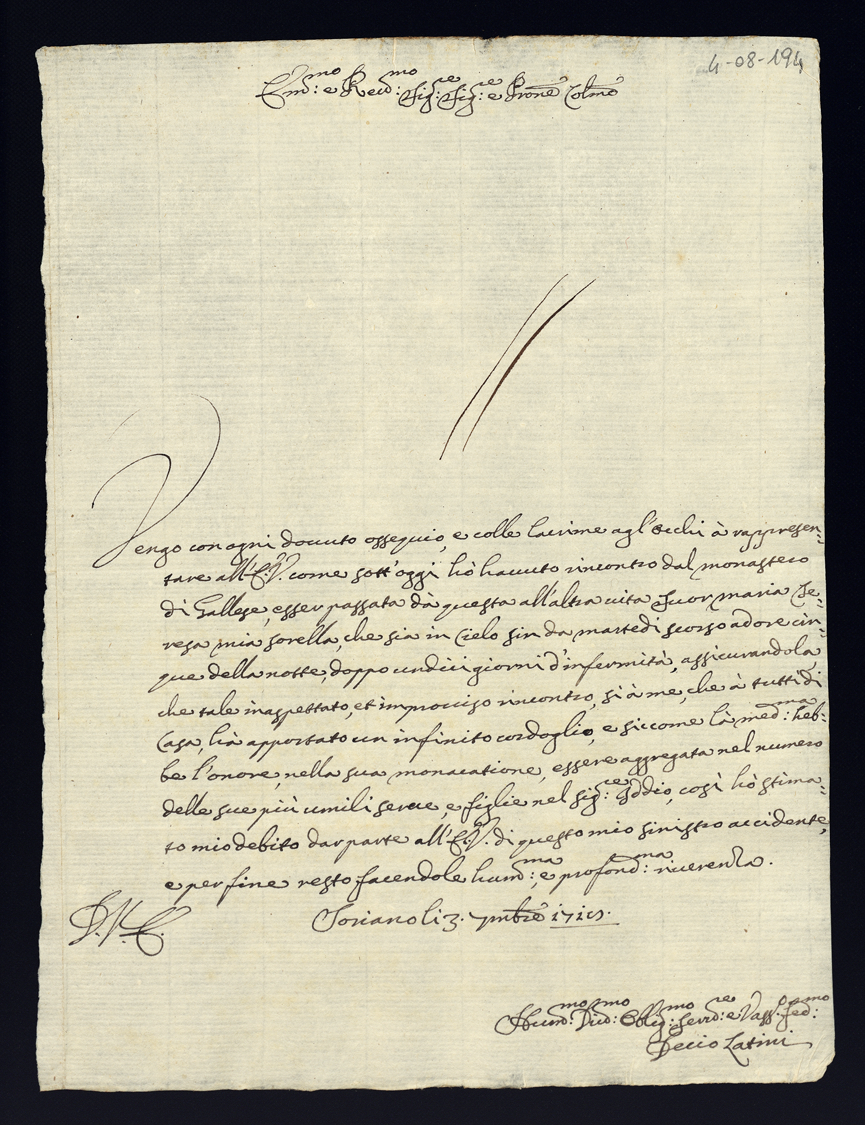 4-08-194
Em:mo e Reud:mo Sig:re Sig:re e Prone Colmo
Vengo con ogni douuto ossequio, e colle lacrime agl'occhi à rappresen-
tare all'E.V. come sott'oggi hò hauuto rincontro dal monastero
di Gallese, esser passata dà questa all'altra uita Suor maria Te-
resa mia sorella, che sia in Cielo sin da martedì scorso adore cin-
que della notte, doppo undici giorni d'infermità, assicurandola,
che tale inaspettato, et improuiso rincontro, sì à me, che à tutti di
Casa, hà apportato un infinito cordoglio, e siccome la med:ma heb-
be l'onore, nella sua monacatione, essere aggregata nel numero
delle sue più umili serue, e figlie nel sig:re Iddio, così hò stima-
to mio debito dar parte all'E.V. di questo mio sinistro accidente,
e per fine resto facendole hum:ma, e profond:ma riuerenza.
D.V.E.
Soriano li 3. 7mbre
Hum:mo Diu:mo Oblig:mo Seru:re e Vass. Fed:mo
Decio Latini